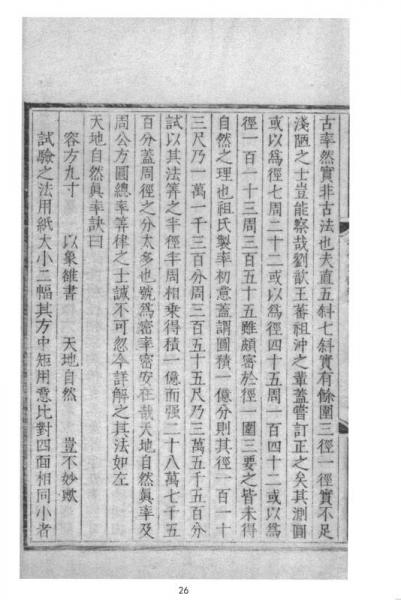 古率然實非古法也夫直五斜七斜實有餘圍三徑一徑實不足
淺陋之士豈能察哉劉歆王蕃祖沖之輩蓋嘗訂正之矣其測圓
或以爲徑七周二十二或以爲徑四十五周一百四十二或以爲
徑一百一十三周三百五十五雖頗密於徑一圍三要之皆未得
自然之理也祖氏製率初意蓋謂圓積一億分則其徑一百一十
三尺乃一萬一千三百分周三百五十五尺乃三萬五千五百分
試以其法筭之半徑半周相乘得積一億而强二十八萬七千五
百分蓋周徑之分太多也號爲密率密安在哉天地自然眞率及
周公方圓總率筭律之士誠不可忽今詳解之其法如左
天地自然眞率訣曰
容方九寸 以象雒書 天地自然 豈不妙歟
試驗之法用紙大小二幅其方中矩用意比對四面相同小者
26